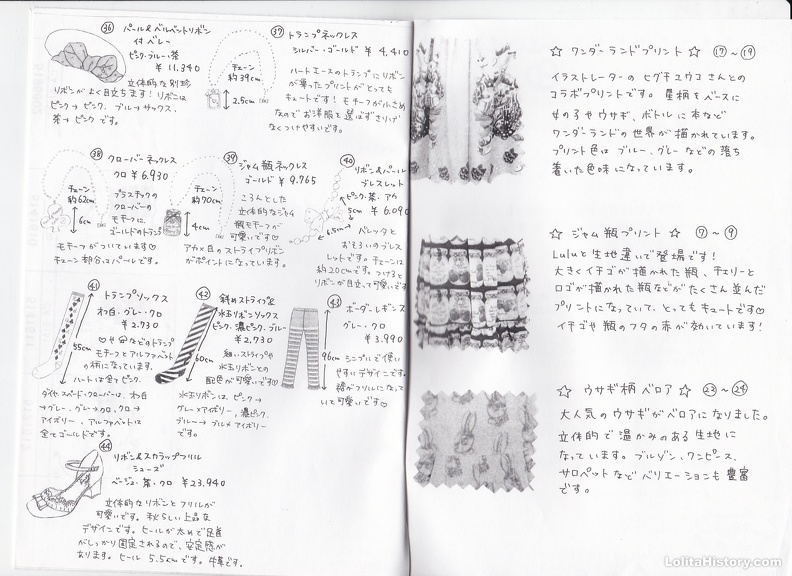 ㊱ パール&ベルベットリボン
付ベレー
ピンク・ブルー・茶
¥11.340
立体的な別珍
リボンがよく目立ちます!リボンは
ピンク→ピンク、ブルー→サックス、
茶→ピンクです。
㊲ トランプネックレス
シルバー・ゴールド ¥4,410
チェーン
約39cm
2.5cm
ハートエースのトランプにリボン
が乗ったプリントがとっても
キュートです!モチーフが小さめ
なのでお洋服を選ばずさりげ
なくつけやすいです。
㊳ クローバーネックレス
クロ ¥6.930
チェーン
約62cm
6cm
プラスチックの
クローバーの
モチーフに
ゴールドのトランプ
モチーフがついています♡
チェーン部分はパールです。
㊴ ジャム瓶ネックレス
ゴールド ¥9.765
チェーン
約70cm
4cm
ころんとした
立体的なジャム
瓶モチーフが
可愛いです♡
アカ×白のストライプリボン
がポイントになっています。
㊵ リボン&パール
ブレスレット
ピンク・茶・アカ
¥6.090
5cm
6.5cm
バレッタと
おそろいのブレス
レットです。チェーンは
約20cmです。つけると
リボンが目立って可愛いです
㊶ トランプソックス
ワ白・グレー・クロ
¥2.730
55cm
♡や♤などのトランプ
モチーフとアルファベット
の柄になっています。
ハートは全てピンク、
ダイヤ・スペード・クローバーは、ワ白
→グレー、グレー→クロ、クロ→
アイボリー、アルファベットは
全てゴールドです。
㊷ 斜めストライプ&
水玉リボンソックス
ピンク・濃ピンク・ブルー
¥2,730
60cm
細いストライプや
水玉リボンとの
配色が可愛いです♡
水玉リボンは、ピンク→
グレー×アイボリー、濃ピンク・
ブルー→ブルー×アイボリー
です。
㊸ ボーダーレギンス
グレー・クロ
¥3.990
96cm
シンプルで使い
やすいデザインです。
裾がフリルになって
いて可愛いです♡
㊹ リボン&スカラップフリル
シューズ
ベージュ・茶・クロ ¥23.940
立体的なリボンとフリルが
可愛いです。秋らしい上品な
デザインです。ヒールが太めで足首
がしっかり固定されるので、安定感が
あります。ヒール 5.5cmです。牛革です。
☆ ワンダーランドプリント ☆ ⑰~⑲
イラストレーターの ヒグチユウコさんとの
コラボプリントです。星柄をベースに
女の子やウサギ、ボトルに本など
ワンダーランドの世界が描かれています。
プリント色は ブルー、グレーなどの落ち
着いた色味になっています。
☆ ジャム瓶プリント ☆ ⑦~⑨
Luluと生地違いで登場です!
大きくイチゴが描かれた瓶、チェリーと
ロゴが描かれた瓶などがたくさん並んだ
プリントになっていて、とってもキュートです♡
イチゴや瓶のフタの赤が効いています!
☆ ウサギ柄ベロア ☆ ㉓~㉔
大人気のウサギがベロアになりました。
立体的で温かみのある生地に
なっています。ブルゾン、ワンピース、
サロペットなどバリエーションも豊富
です。
LolitaHistory.com